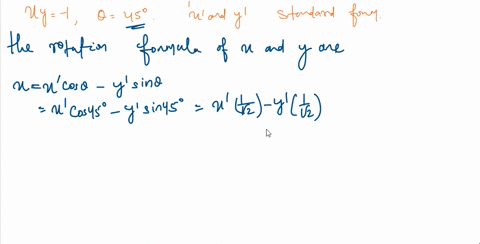 xy=-1, θ=45° 'x' and y' standard form.
the rotation formula of x and y are
x=x'cosθ - y'sinθ
= x'cos45° - y'sin45° = x'(1/√2) - y'(1/√2)